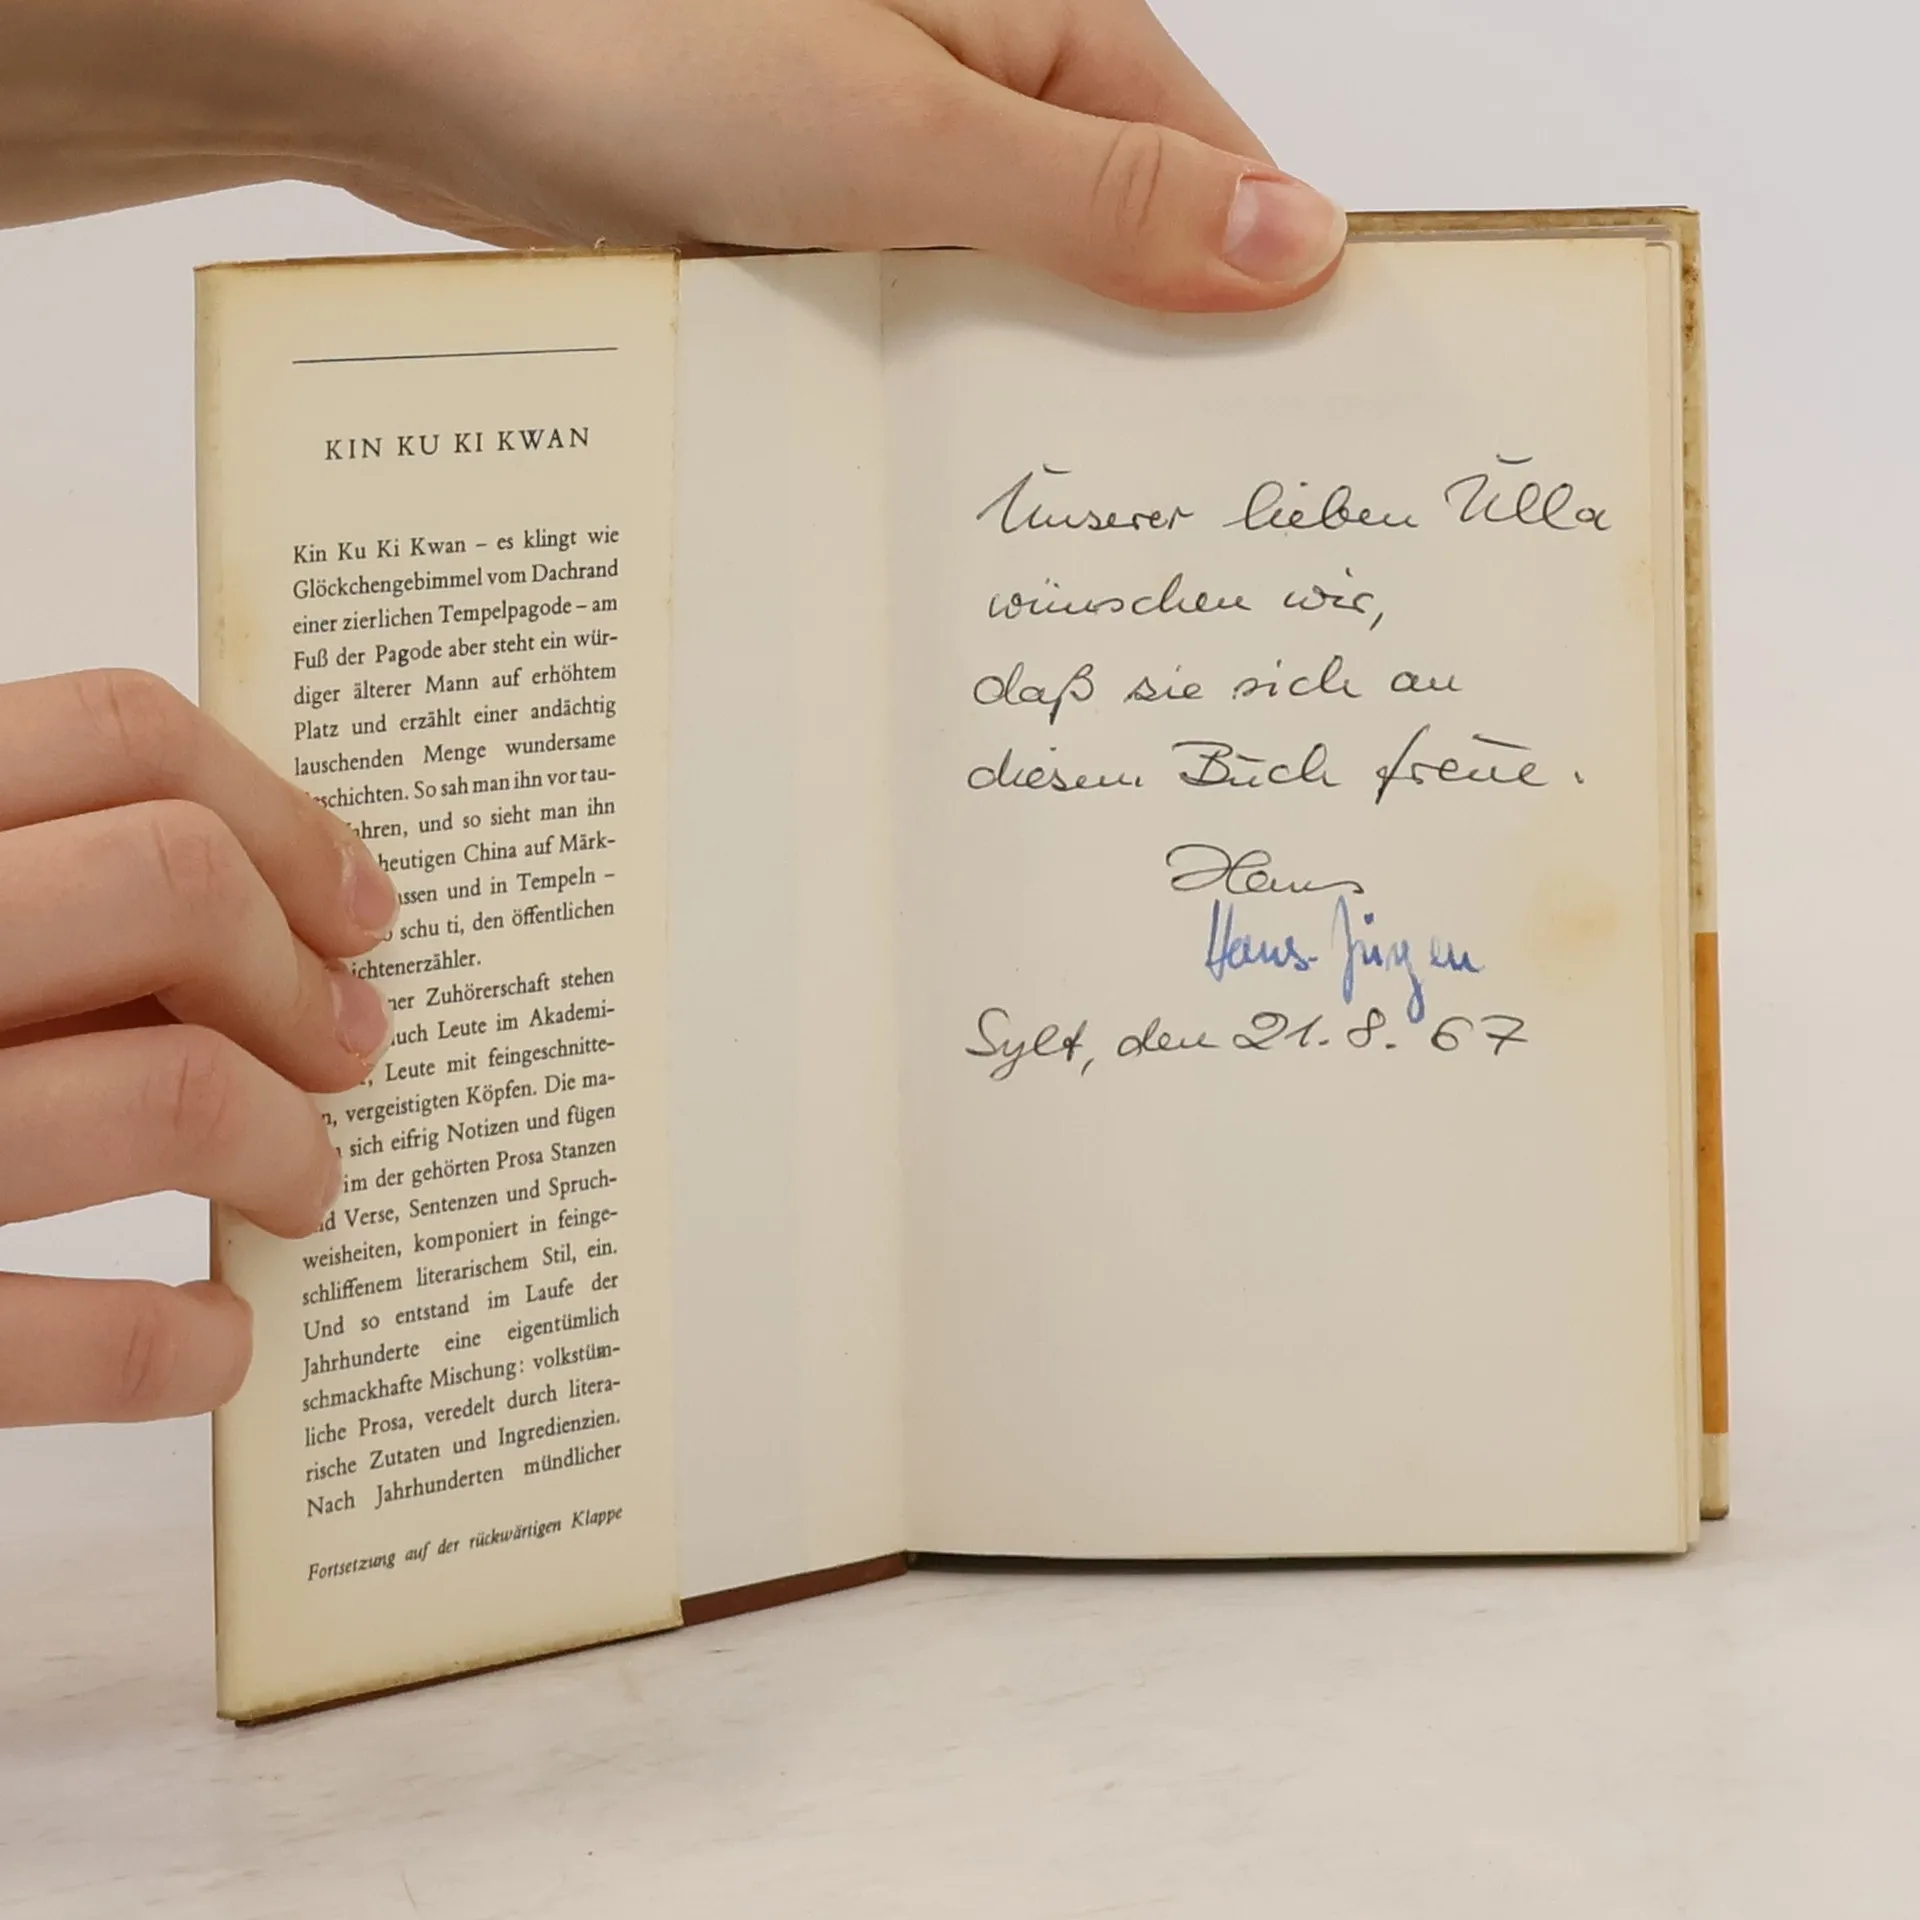 KIN KU KI KWAN
Kin Ku Ki Kwan – es klingt wie
Glöckchengebimmel vom Dachrand
einer zierlichen Tempelpagode – am
Fuß der Pagode aber steht ein wür-
diger älterer Mann auf erhöhtem
Platz und erzählt einer andächtig
lauschenden Menge wundersame
eschichten. So sah man ihn vor tau-
ahren, und so sieht man ihn
heutigen China auf Märk-
ssen und in Tempeln –
schu ti, den öffentlichen
ichtenerzähler.
ner Zuhörerschaft stehen
uch Leute im Akademi-
, Leute mit feingeschnitte-
n, vergeistigten Köpfen. Die ma-
sich eifrig Notizen und fügen
im der gehörten Prosa Stanzen
nd Verse, Sentenzen und Spruch-
weisheiten, komponiert in feinge-
schliffenem literarischem Stil, ein.
Und so entstand im Laufe der
Jahrhunderte eine eigentümlich
schmackhafte Mischung: volkstüm-
liche Prosa, veredelt durch litera-
rische Zutaten und Ingredienzien.
Nach Jahrhunderten mündlicher
Fortsetzung auf der rückwärtigen Klappe
Unserer lieben Ulla
wünschen wir,
daß sie sich an
diesem Buch freue.
Hans
Hans-Jürgen
Sylt, den 21. 8. 67